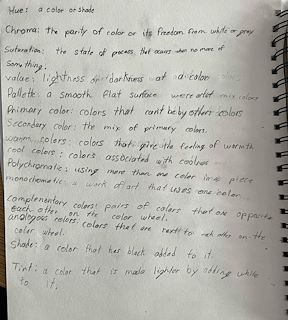 Hue: a color or shade
Chroma: the purity of color or its freedom from white or gray
Saturation: the state of process, that occurs when no more of
Something.
value: lightness or darkness of a color
Pallete: a smooth flat surface were artist mix colors
Primary color: colors that cant be by other colors
Secondary color: the mix of primary colors.
warm colors: colors that give the feeling of warmth
cool colors: colors associated with
Polychromatic: using more than one color in a piece
monochomatic: a work of art that uses one color
complementary colors: pairs of colors that are opposite
each other on the color wheel.
analogous colors: colors that are next to each other on the
color wheel.
Shade: a color that has black added to it
Tint: a color that is made lighter by adding white
to it.